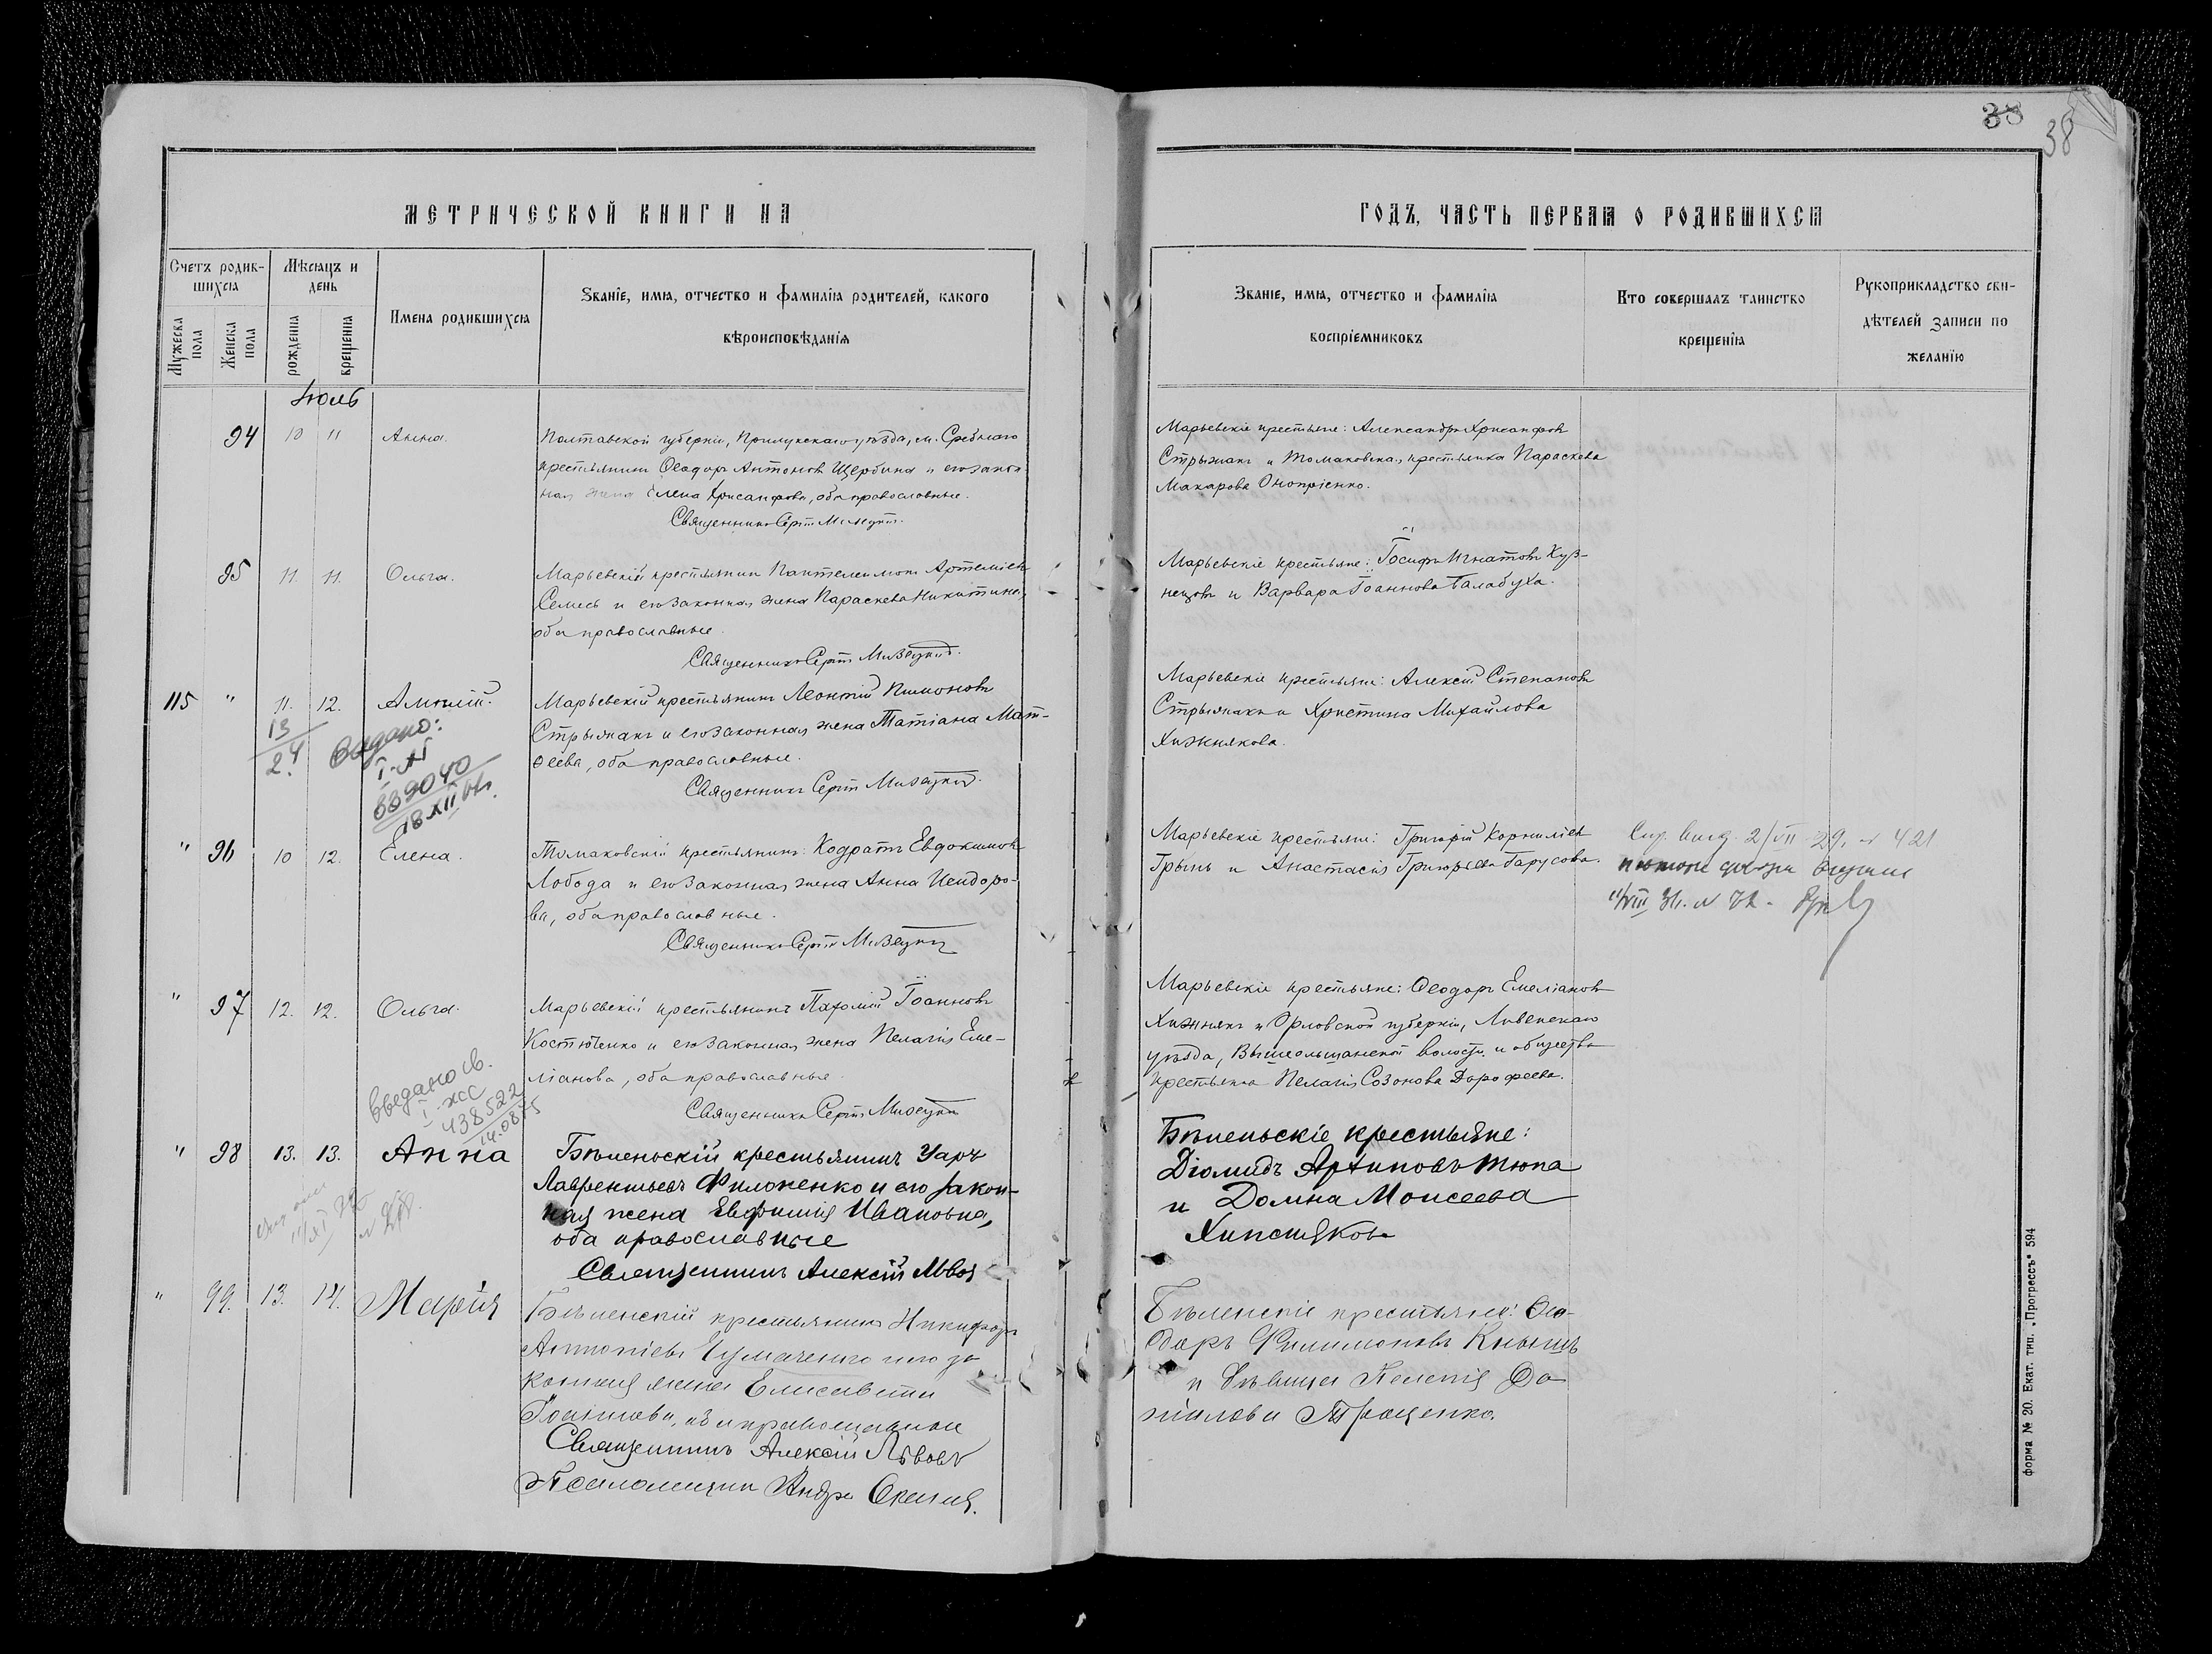 38
38
МЕТРИЧЕСКОЙ КНИГИ НА
ГОДЪ, ЧАСТЬ ПЕРВАЯ О РОДИВШИХСЯ
Счетъ родив-
шихся
Мѣсяцъ и
день
Мужеска
пола
Женска
пола
рожденія
крещенія
Имена родившихся
Званіе, имя, отчество и фамилія родителей, какого
вѣроисповѣданія
Званіе, имя, отчество и фамилія
воспріемниковъ
Кто совершалъ таинство
крещенія
Рукоприкладство сви-
дѣтелей записи по
желанію
Іюль
94 10 11 Анна.
Полтавской губерніи, Прилукскаго уѣзда, м. Сребнаго
крестьянинъ Ѳеодоръ Антоновъ Щербина и его закон-
ная жена Елена Хрисанфова, оба православные.
Священникъ Сергій Мивецкій.
Марьевскіе крестьяне: Александръ Хрисанфовъ
Стрыжакъ и Томаковская крестьянка Параскева
Макарова Оноприенко.
95 11. 11. Ольга.
Марьевскій крестьянинъ Пантелеимонъ Артеміевъ
и его законная жена Параскева Никитина,
оба православные.
Священникъ Сергій Мивецкій.
Марьевскіе крестьяне: Іосифъ Игнатовъ Куз-
нецовъ и Варвара Іоаннова Галабуха.
115 " 11. 12.
13
24
Выдано:
I-
889040
18 XII
Марьевскій крестьянинъ Леонтій Пимоновъ
Стрыжакъ и его законная жена Татіана Мат-
ѳеева, оба православные.
Священникъ Сергій Мивецкій.
Марьевскіе крестьяне: Алексій Степановъ
Стрыжакъ и Христина Михайлова
Хижнякова.
" 96 10 12. Елена.
Томаковскій крестьянинъ: Кодратъ Евдокимовъ
Лобода и его законная жена Анна Исидоро-
ва, оба православные.
Священникъ Сергій Мивецкій
Марьевскіе крестьяне: Григорій Корниліевъ
Грынь и Анастасія Григорьева Гарусова.
2/VII 29. № 421
" 97 12. 12. Ольга.
Марьевскій крестьянинъ Пахомій Іоанновъ
Костюченко и его законная жена Пелагія Еме-
ліанова, оба православные.
Священникъ Сергій Мивецкій
Марьевскіе крестьяне: Ѳеодоръ Емеліановъ
Хижнякъ и Орловской губерніи, Ливенскаго
уѣзда, волости и общества
крестьянка Пелагія Созонова Дорофеева.
выдано св.
438522
" 98 13. 13. Анна
Бѣленьскій крестьянинъ Уаръ
Лаврентьевъ Филоненко и его закон-
ная жена Евфимія Ивановна,
оба православные
Священникъ Алексій Львовъ
Бѣленьскіе крестьяне:
Діомидъ Тюпа
и Домна Моисеева
" 99. 13. 14. Марія
Бѣленскій крестьянинъ Никифоръ
Антоніевъ Чумаченко и его за-
конная жена Елисавета
оба православные
Священникъ Алексій Львовъ
Псаломщикъ
Бѣленскіе крестьяне: Ѳео-
доръ Филимоновъ Кнышъ
и дѣвица Пелагія Да-
ніилова Троценко.
форма № 20. Екат. тип. „Прогрессъ" 594